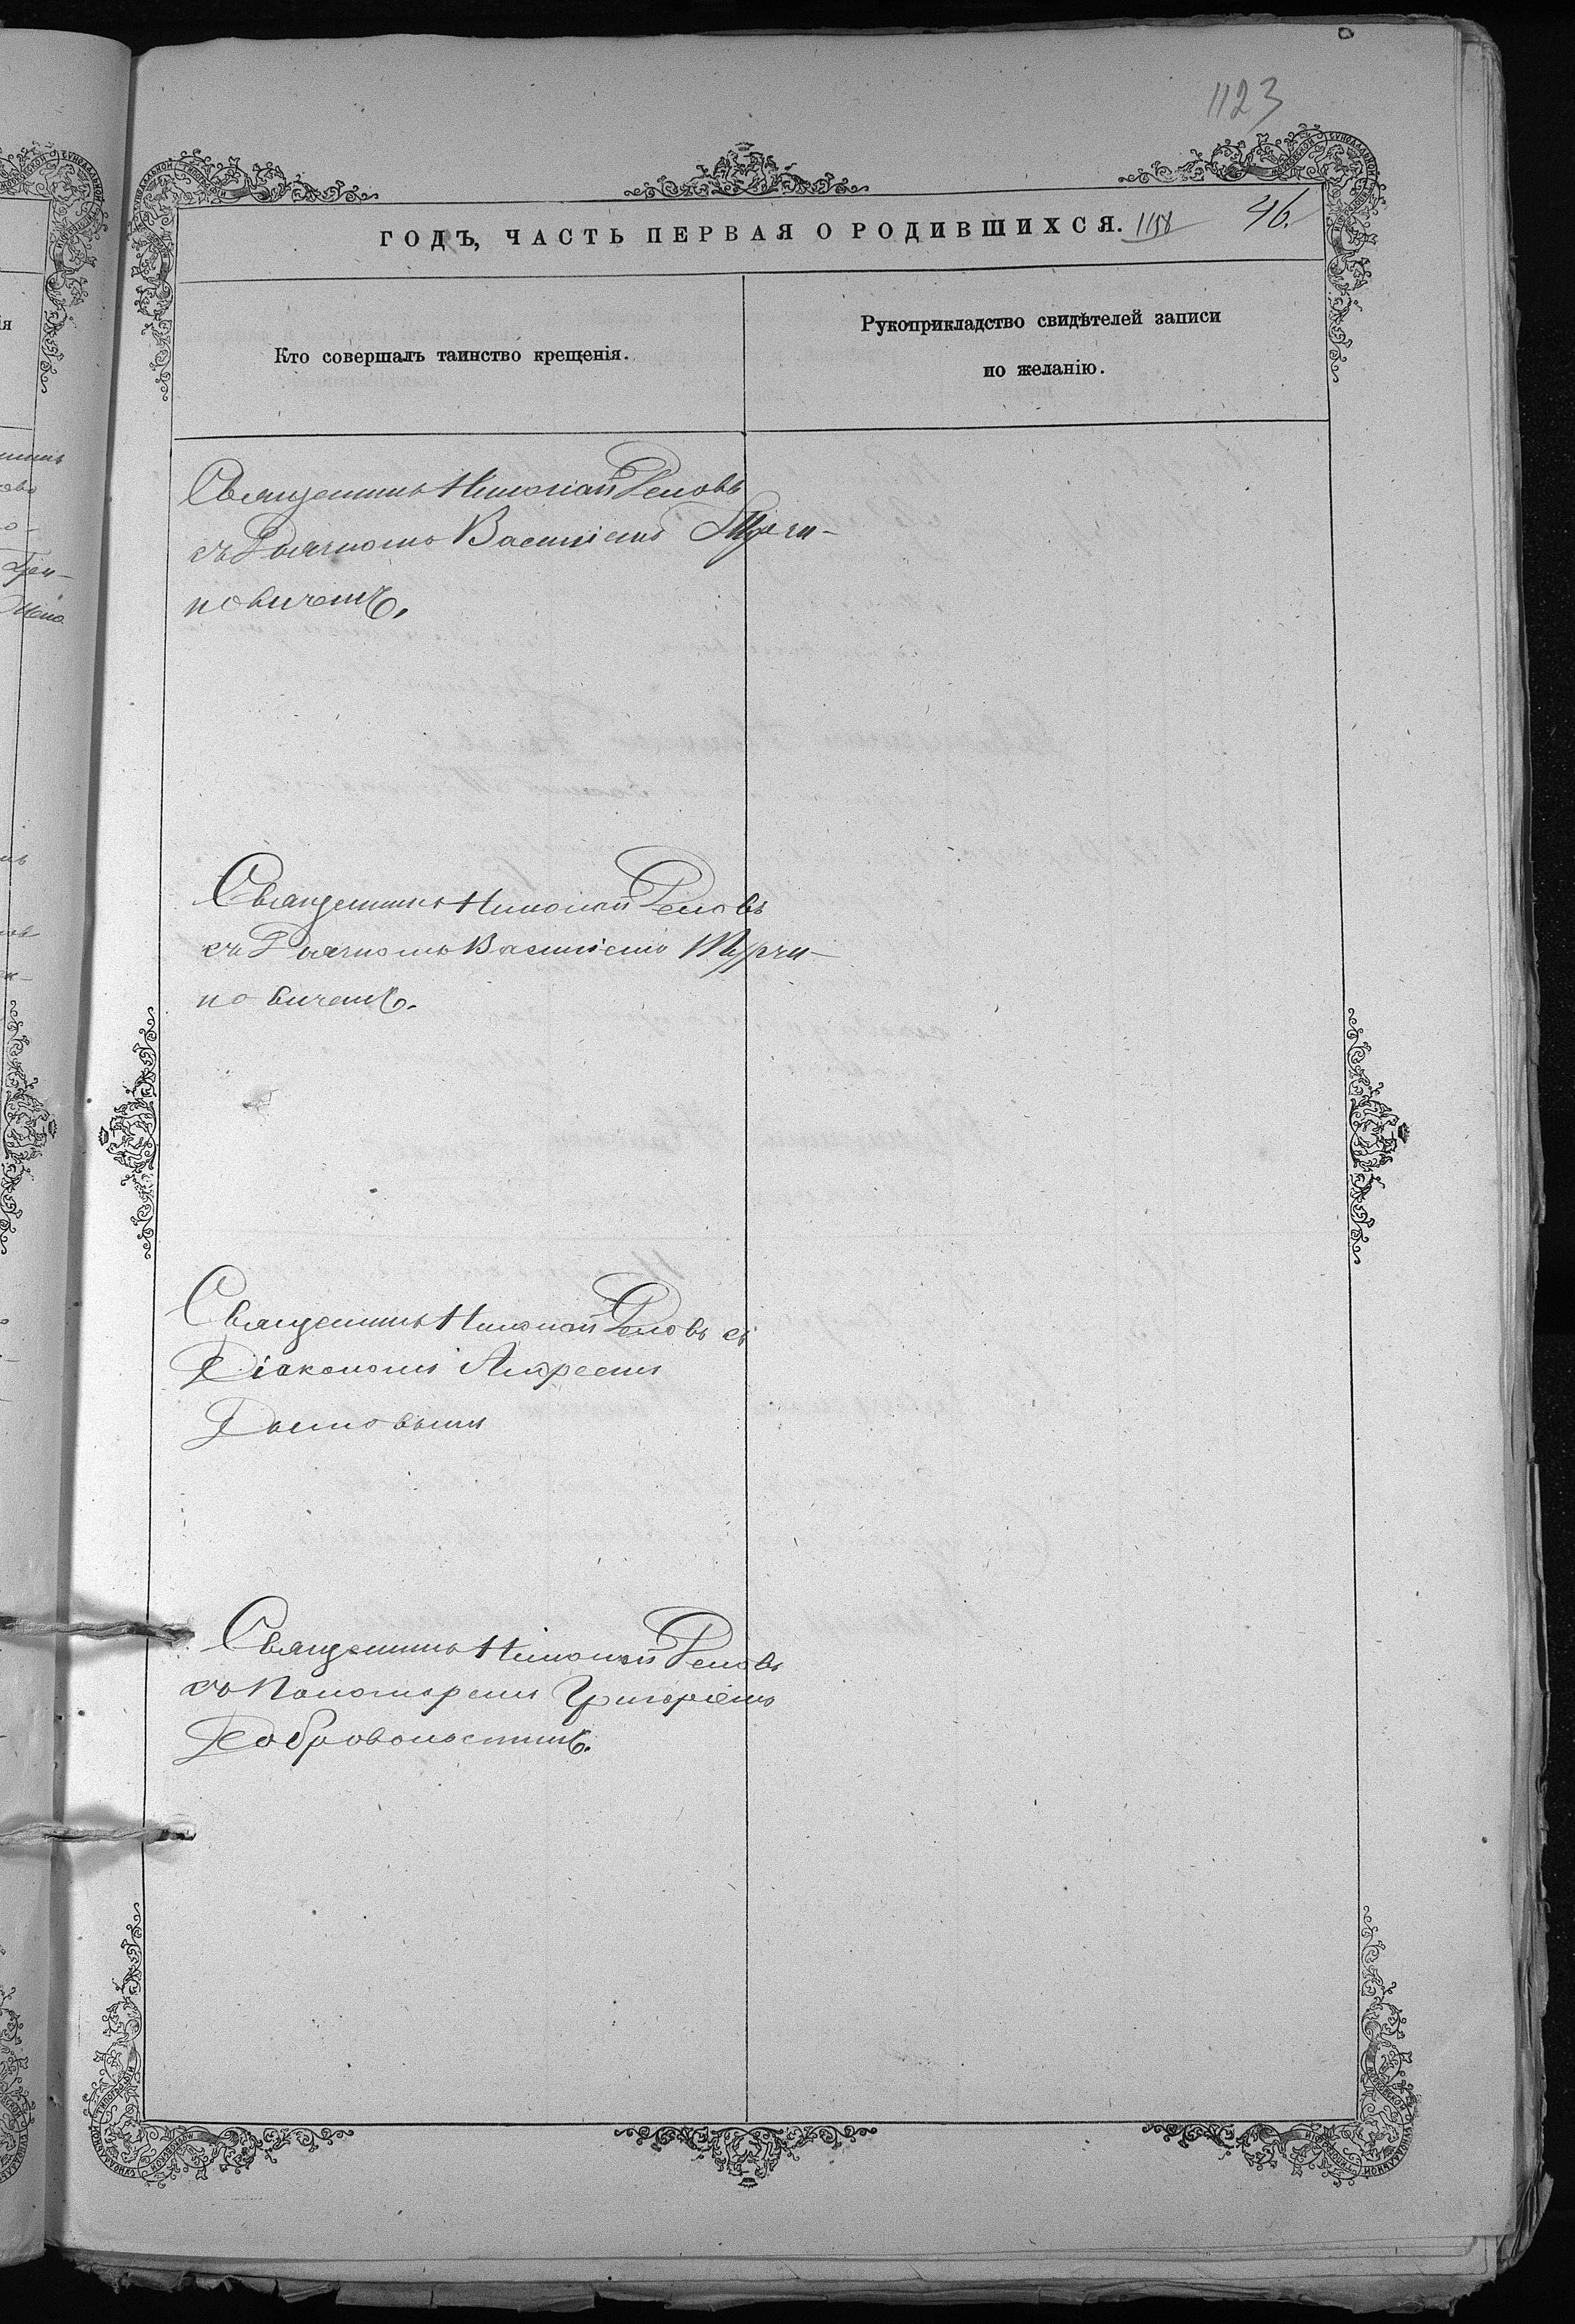 1123
46.
ГОДЪ, ЧАСТЬ ПЕРВАЯ О РОДИВШИХСЯ. 1158
Кто совершалъ таинство крещенія.
Рукоприкладство свидѣтелей записи
по желанію.
Священникъ Николай
съ Дьячкомъ Василіемъ Турчи-
новичемъ.
Священникъ Николай
съ Дьячкомъ Василіемъ Турчи-
новичемъ.
Священникъ Николай съ
Діакономъ Андреемъ
Священникъ Николай
съ Пономаремъ Григоріемъ